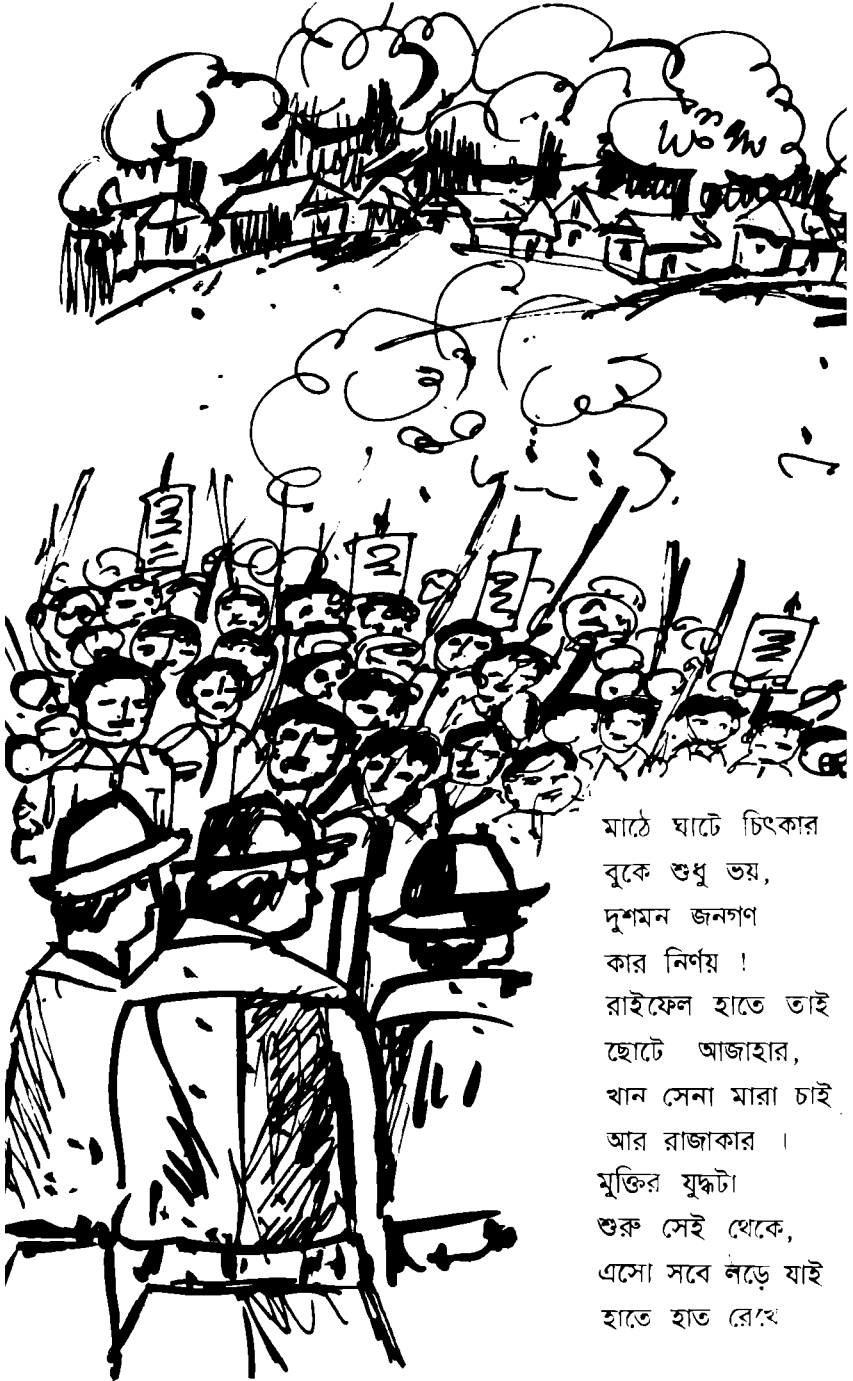 মাঠে ঘাটে চিৎকার
বুকে শুধু ভয়,
দুশমন জনগণ
কার নির্ণয় !
রাইফেল হাতে তাই
ছোটে আজাহার,
খান সেনা মারা চাই
আর রাজাকার ।
মুক্তির যুদ্ধটা
শুরু সেই থেকে,
এসো সবে লড়ে যাই
হাতে হাত রেখে